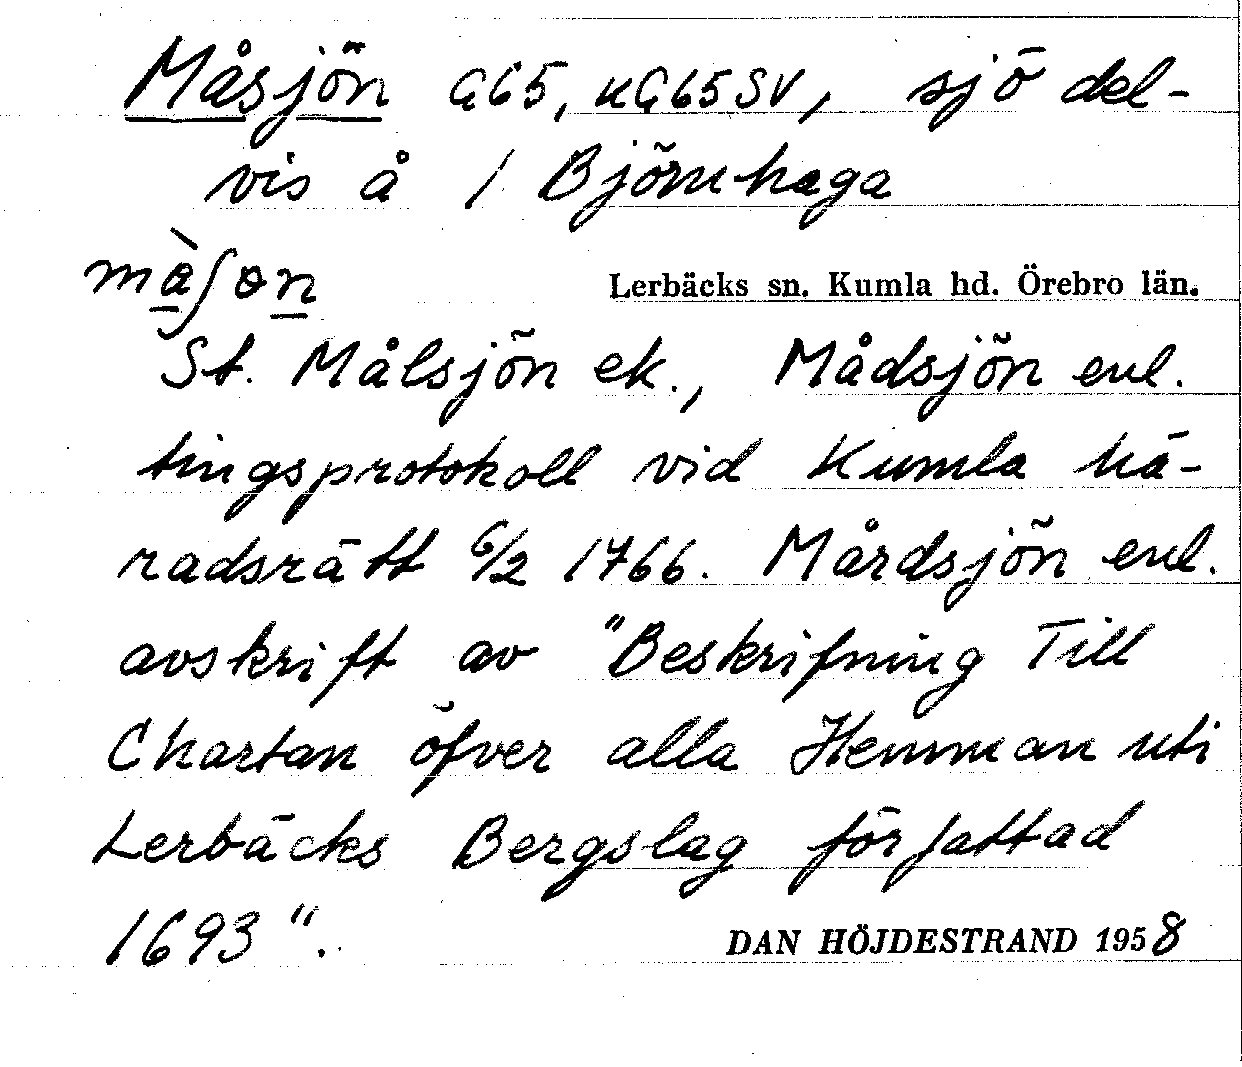 Måsjön G65, KG65SV, sjö del-
vis å / Björnhaga
màʃon
Lerbäcks sn. Kumla hd. Örebro län.
St. Målsjön ek., Mådsjön enl.
tingsprotokoll vid Kumla hä-
radsrätt 6/2 1766. Mårdsjön enl.
avskrift av "Beskrifning Till
Chartan öfver alla Hemman uti
Lerbäcks Bergslag författad
1693".
DAN HÖJDESTRAND 1958